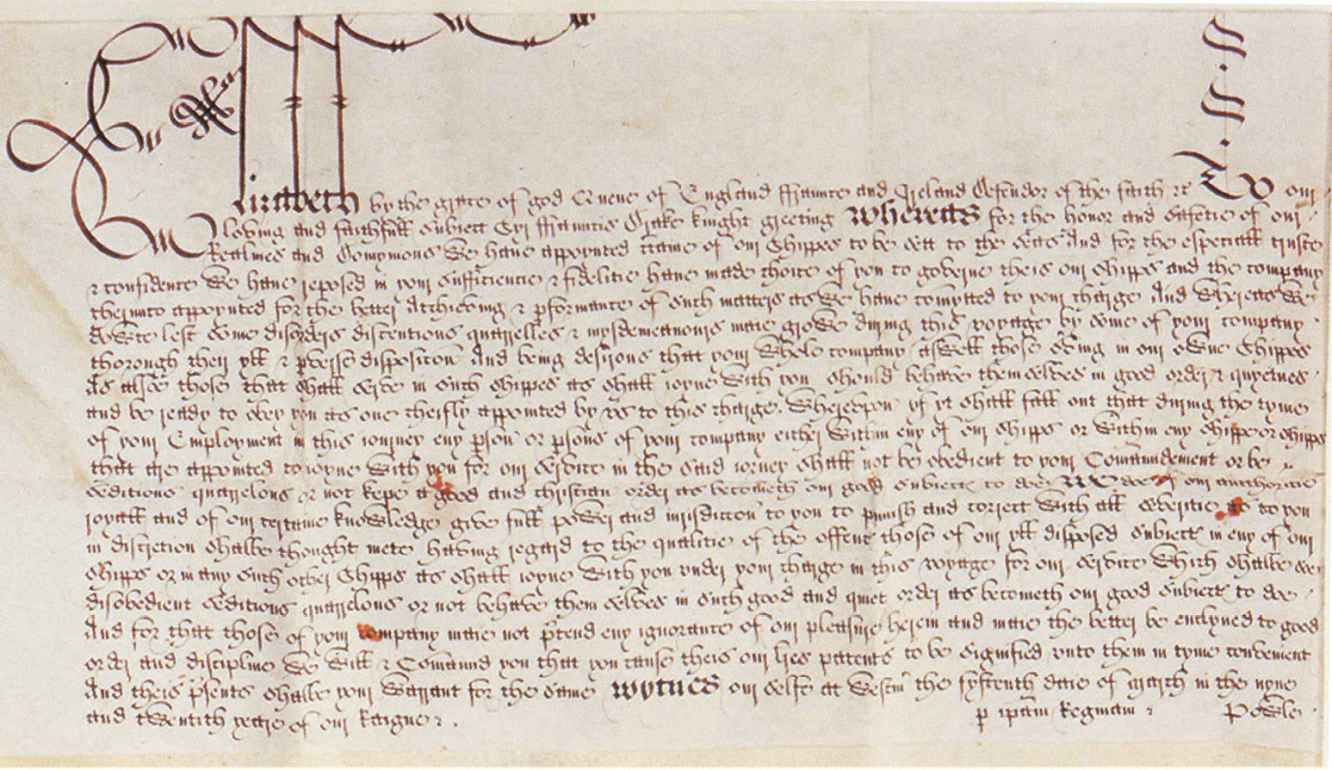 Elizabeth by the grace of god Quene of England Ffraunce and Ireland Defendor of the faith &c To our
loving and faithfull Subiect Syr Ffrauncis Drake knight greeting Whereas for the honor and safetie of our
Realmes and Domynions We have appoynted of our Shippes to be sett to the seas And for the especiall truste
& confidence We have reposed in your sufficiencie & fidelitie have made choice of you to governe theis our Shipps and the company
therunto appoynted for the better atcheving & pformance of such matters as we have comytted to your charge And Whereas We
dowte lest some disorders discentions quarelles & mysdemeanours maie growe during this voyage by some of your company
thorough their yll & pverse disposicon And being desirous that your whole company aswell those serving in our owne Shippes
As alsoe those that shall serve in such shippes as shall ioyne with you should behave themselves in good order & quyetnes
and be ready to obey you as one cheifly appointed by us to this charge. Whereupon yf yt shall fall out that during the tyme
of your Employment in this iourney eny pson or psons of your company either within eny of our shipps or within eny shippe or shipps
that are appointed to ioyne with you for our service in the said iorney shall not be obedient to your Comaundement or be
seditious quarelous or not kepe a good and christian order as becometh our good subiects to doe We doe of our authoritie
royall and of our certaine knowledge give full power and iurisdiccon to you to punish and correct with all severitie as to you
in discretion shalbe thought mete having regard to the qualitie of the offence those of our yll disposed subiects in eny of our
shipps or in any such other Shipps as shall ioyne with you under your charge in this voyage for our service Which shalbe soe
disobedient seditious quarelous or not behave them selves in such good and quiet order as becometh our good subiects to doe
And for that those of your company maie not ptend eny ignorance of our pleasure herein and maie the better be enclyned to good
order and discipline We Will & Comaund you that you cause theis our lres patents to be signified unto them in tyme convenient
And theis psents shalbe your Warrant for the same Wytnes our selfe at Westm the fyftenth daie of March in the nyne
and twentith yeare of our Raigne
p ipam Reginam Powle